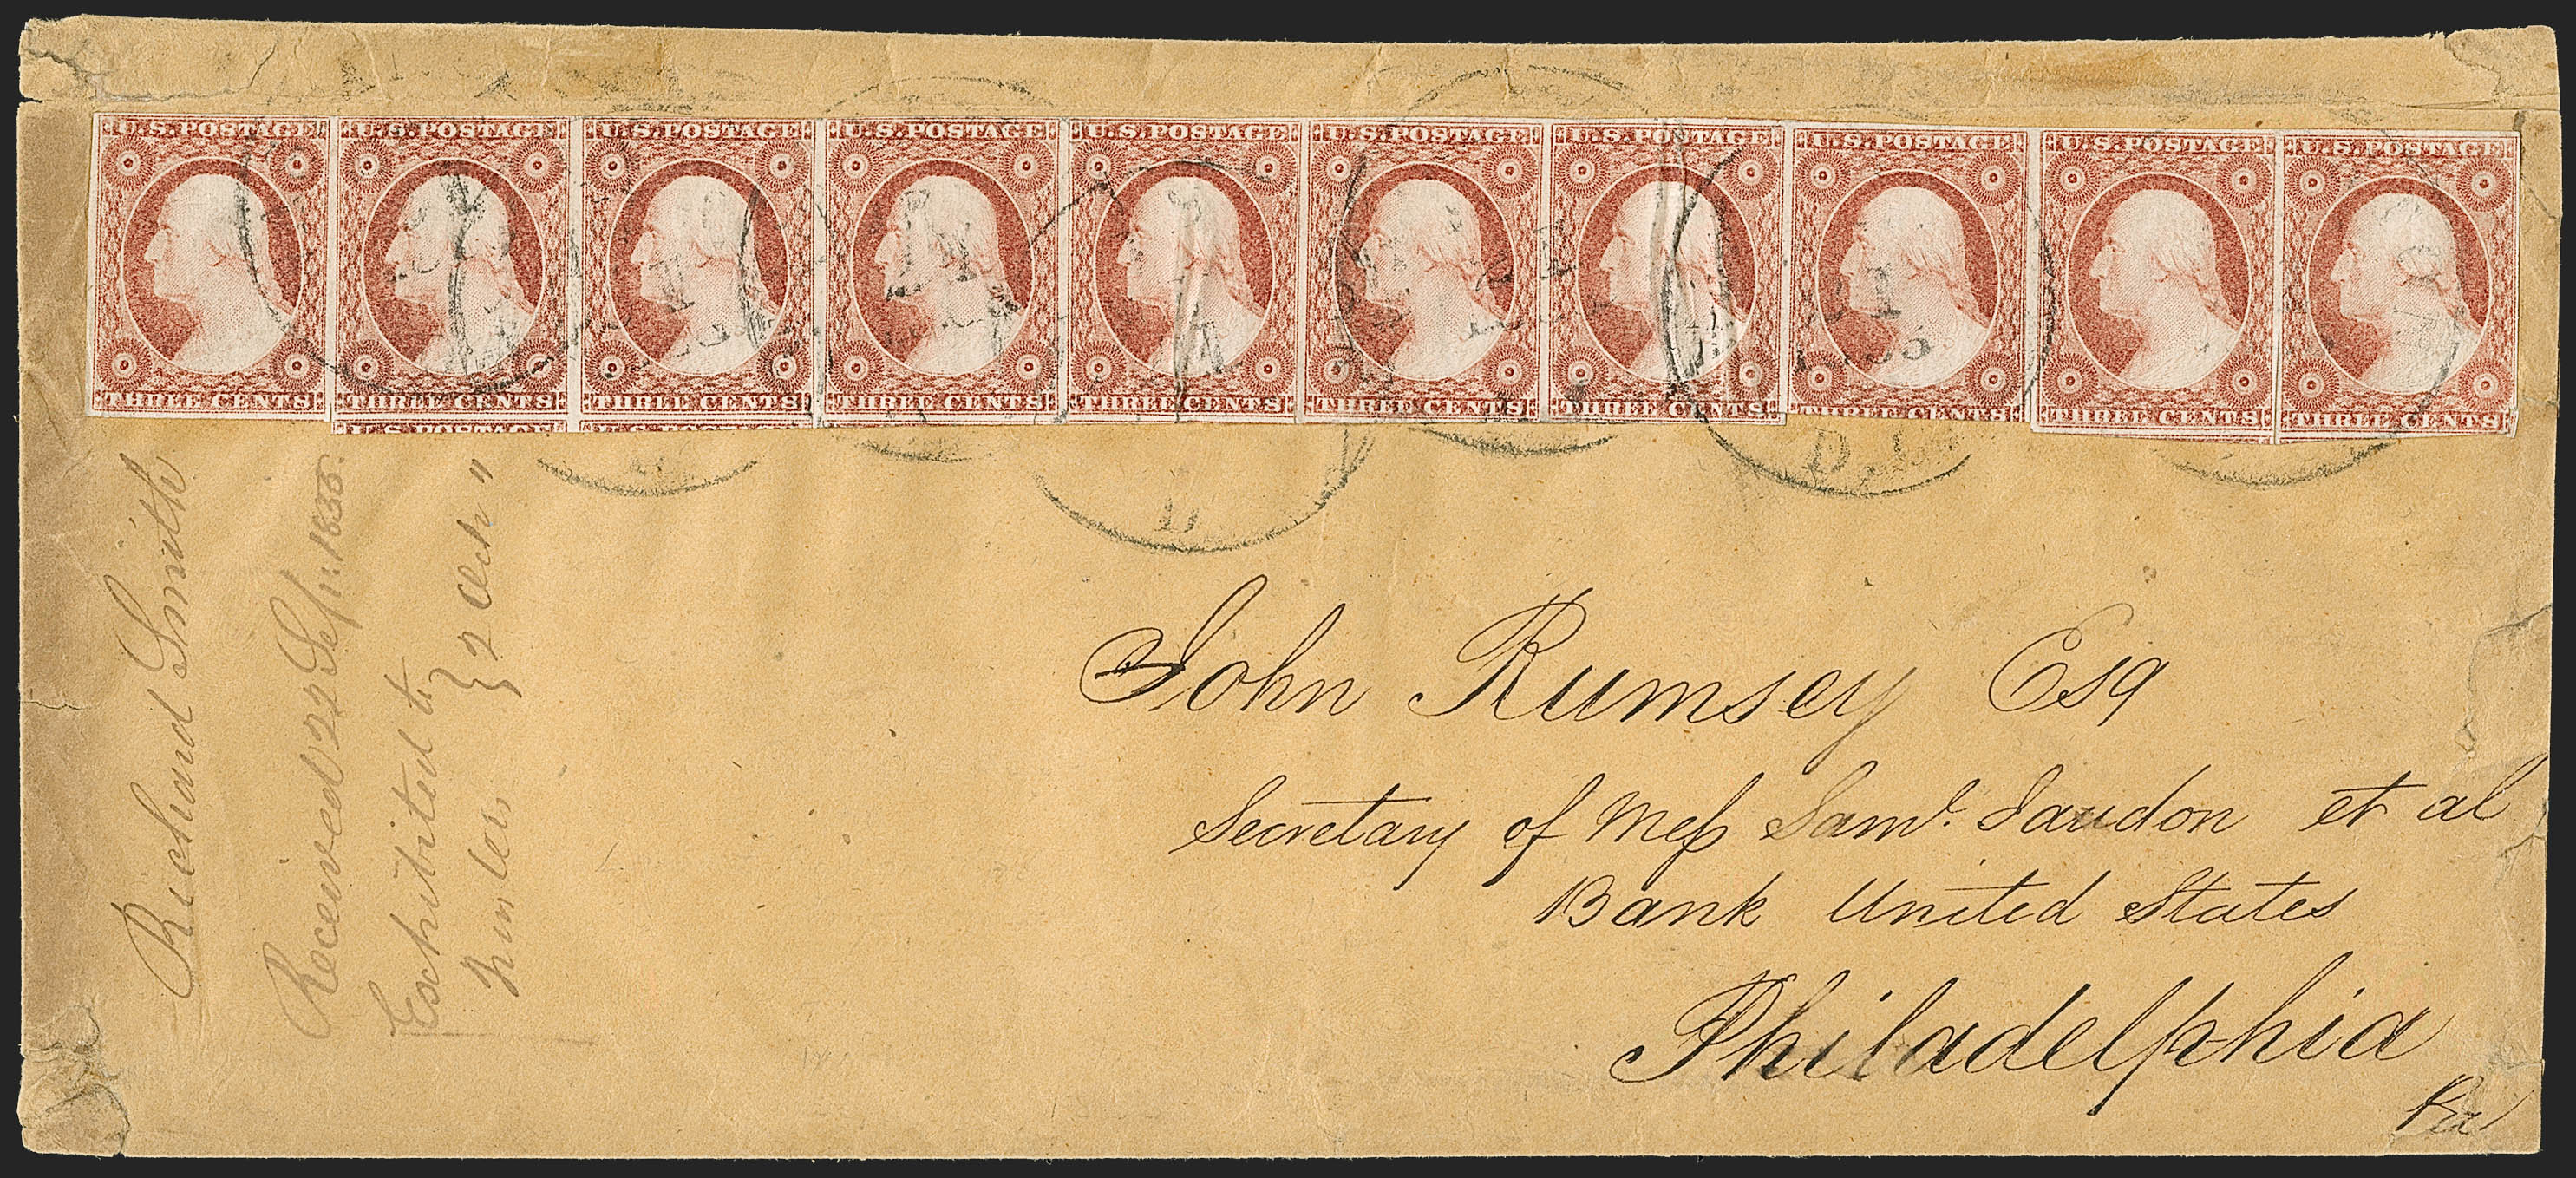 U.S. POSTAGE U.S. POSTAGE U.S. POSTAGE U.S. POSTAGE U.S. POSTAGE U.S. POSTAGE U.S. POSTAGE U.S. POSTAGE U.S. POSTAGE U.S. POSTAGE
THREE CENTS THREE CENTS THREE CENTS THREE CENTS THREE CENTS THREE CENTS THREE CENTS THREE CENTS THREE CENTS THREE CENTS
U.S. POSTAGE U.S. POSTAGE
D
D. C.
Richard Smith
Received 22 Sep. 1855.
Exhibited to
} 2 Oct "
John Rumsey Esq
Secretary of Mess Saml. Jaudon et al
Bank United States
Philadelphia
Pa